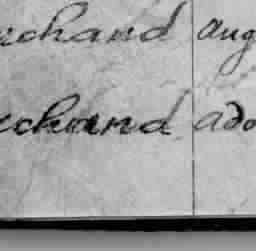 rchand aug
echand ado